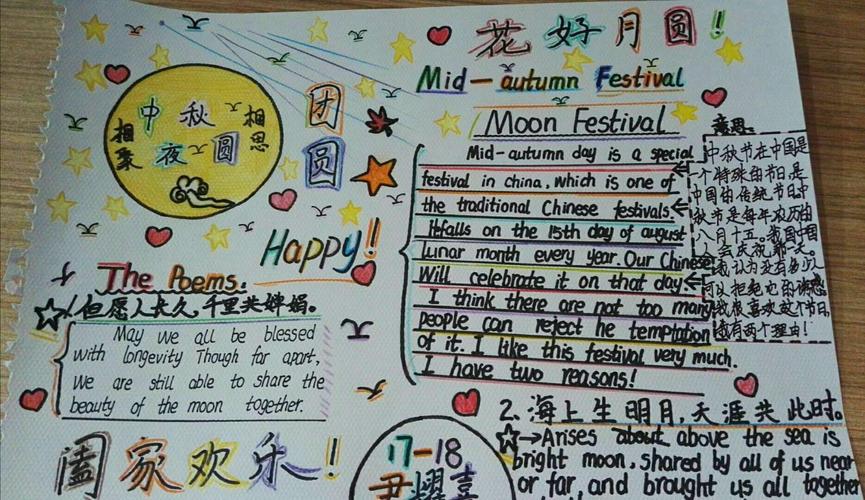 花好月圆!
Mid-autumn Festival
中秋
夜圆
相聚
相思
团圆
Happy!
Moon Festival
Mid-autumn day is a special
festival in china, which is one of
the traditional Chinese festivals.
Itfalls on the 15th day of august
lunar month every year. Our Chinese
Will celebrate it on that day.
I think there are not too many
people can reject he temptation
of it. I like this festival very much.
I have two reasons!
意思:
中秋节在中国是
一个特殊的节日,是
中国的传统节日中
秋节是每年农历的
八月十五。我国中国
人会庆祝那一天。
我认为没有多少人
可以拒绝它的诱惑
我很喜欢这个节日,
我有两个理由!
The Poems:
1/但愿人长久,千里共婵娟。
May we all be blessed
with longevity Though far apart,
we are still able to share the
beauty of the moon together.
阖家欢乐!
17-18
尹耀喜
2.海上生明月,天涯共此时。
Arises about above the sea is
bright moon, shared by all of us near
or far, and brought us all together